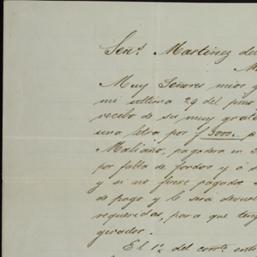 Sen.s Martinez de
M
Muy Señores mios y
mi ultima 29 del pmo
recibo de su muy grata
una letra por $ 3000. a
Maliaño, pagadera en
por falta de fondos y á
y si no fuese pagada
de pago y le será devuel
requeridas, para que
girador.
El 1º del corr.te